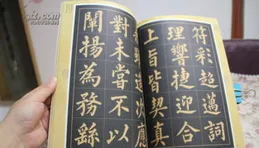 符彩超邁詞
理響捷迎合
上旨皆契真
造次應
對未嘗不以
闡揚為務繇